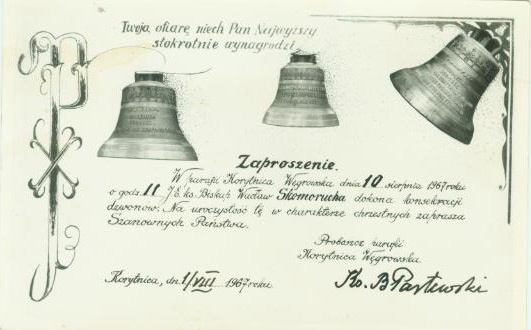 Twoją ofiarę niech Pan Najwyższy
stokrotnie wynagrodzi.
Zaproszenie.
W parafji Korytnica Węgrowska dnia 10 sierpnia 1967 roku
o godz. 11 J. E. ks. Biskup Wacław Skomorucha dokona konsekracji
dzwonów. Na uroczystość tę w charakterze chrzestnych zaprasza
Szanownych Państwa.
Proboszcz parafji
Korytnica Węgrowska
Korytnica, dn. 1/VIII 1967 roku
Ks. B Pasłewski